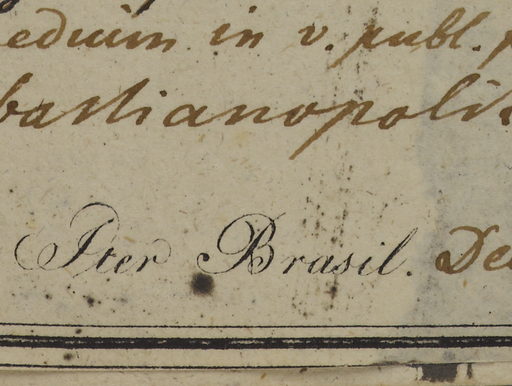 edium in v. publ.
bastianopolit
Iter Brasil. Dec